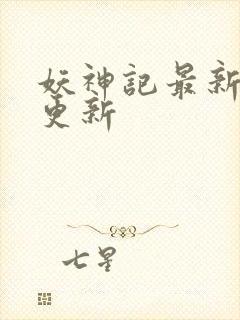 妖神記最新
更新
七星